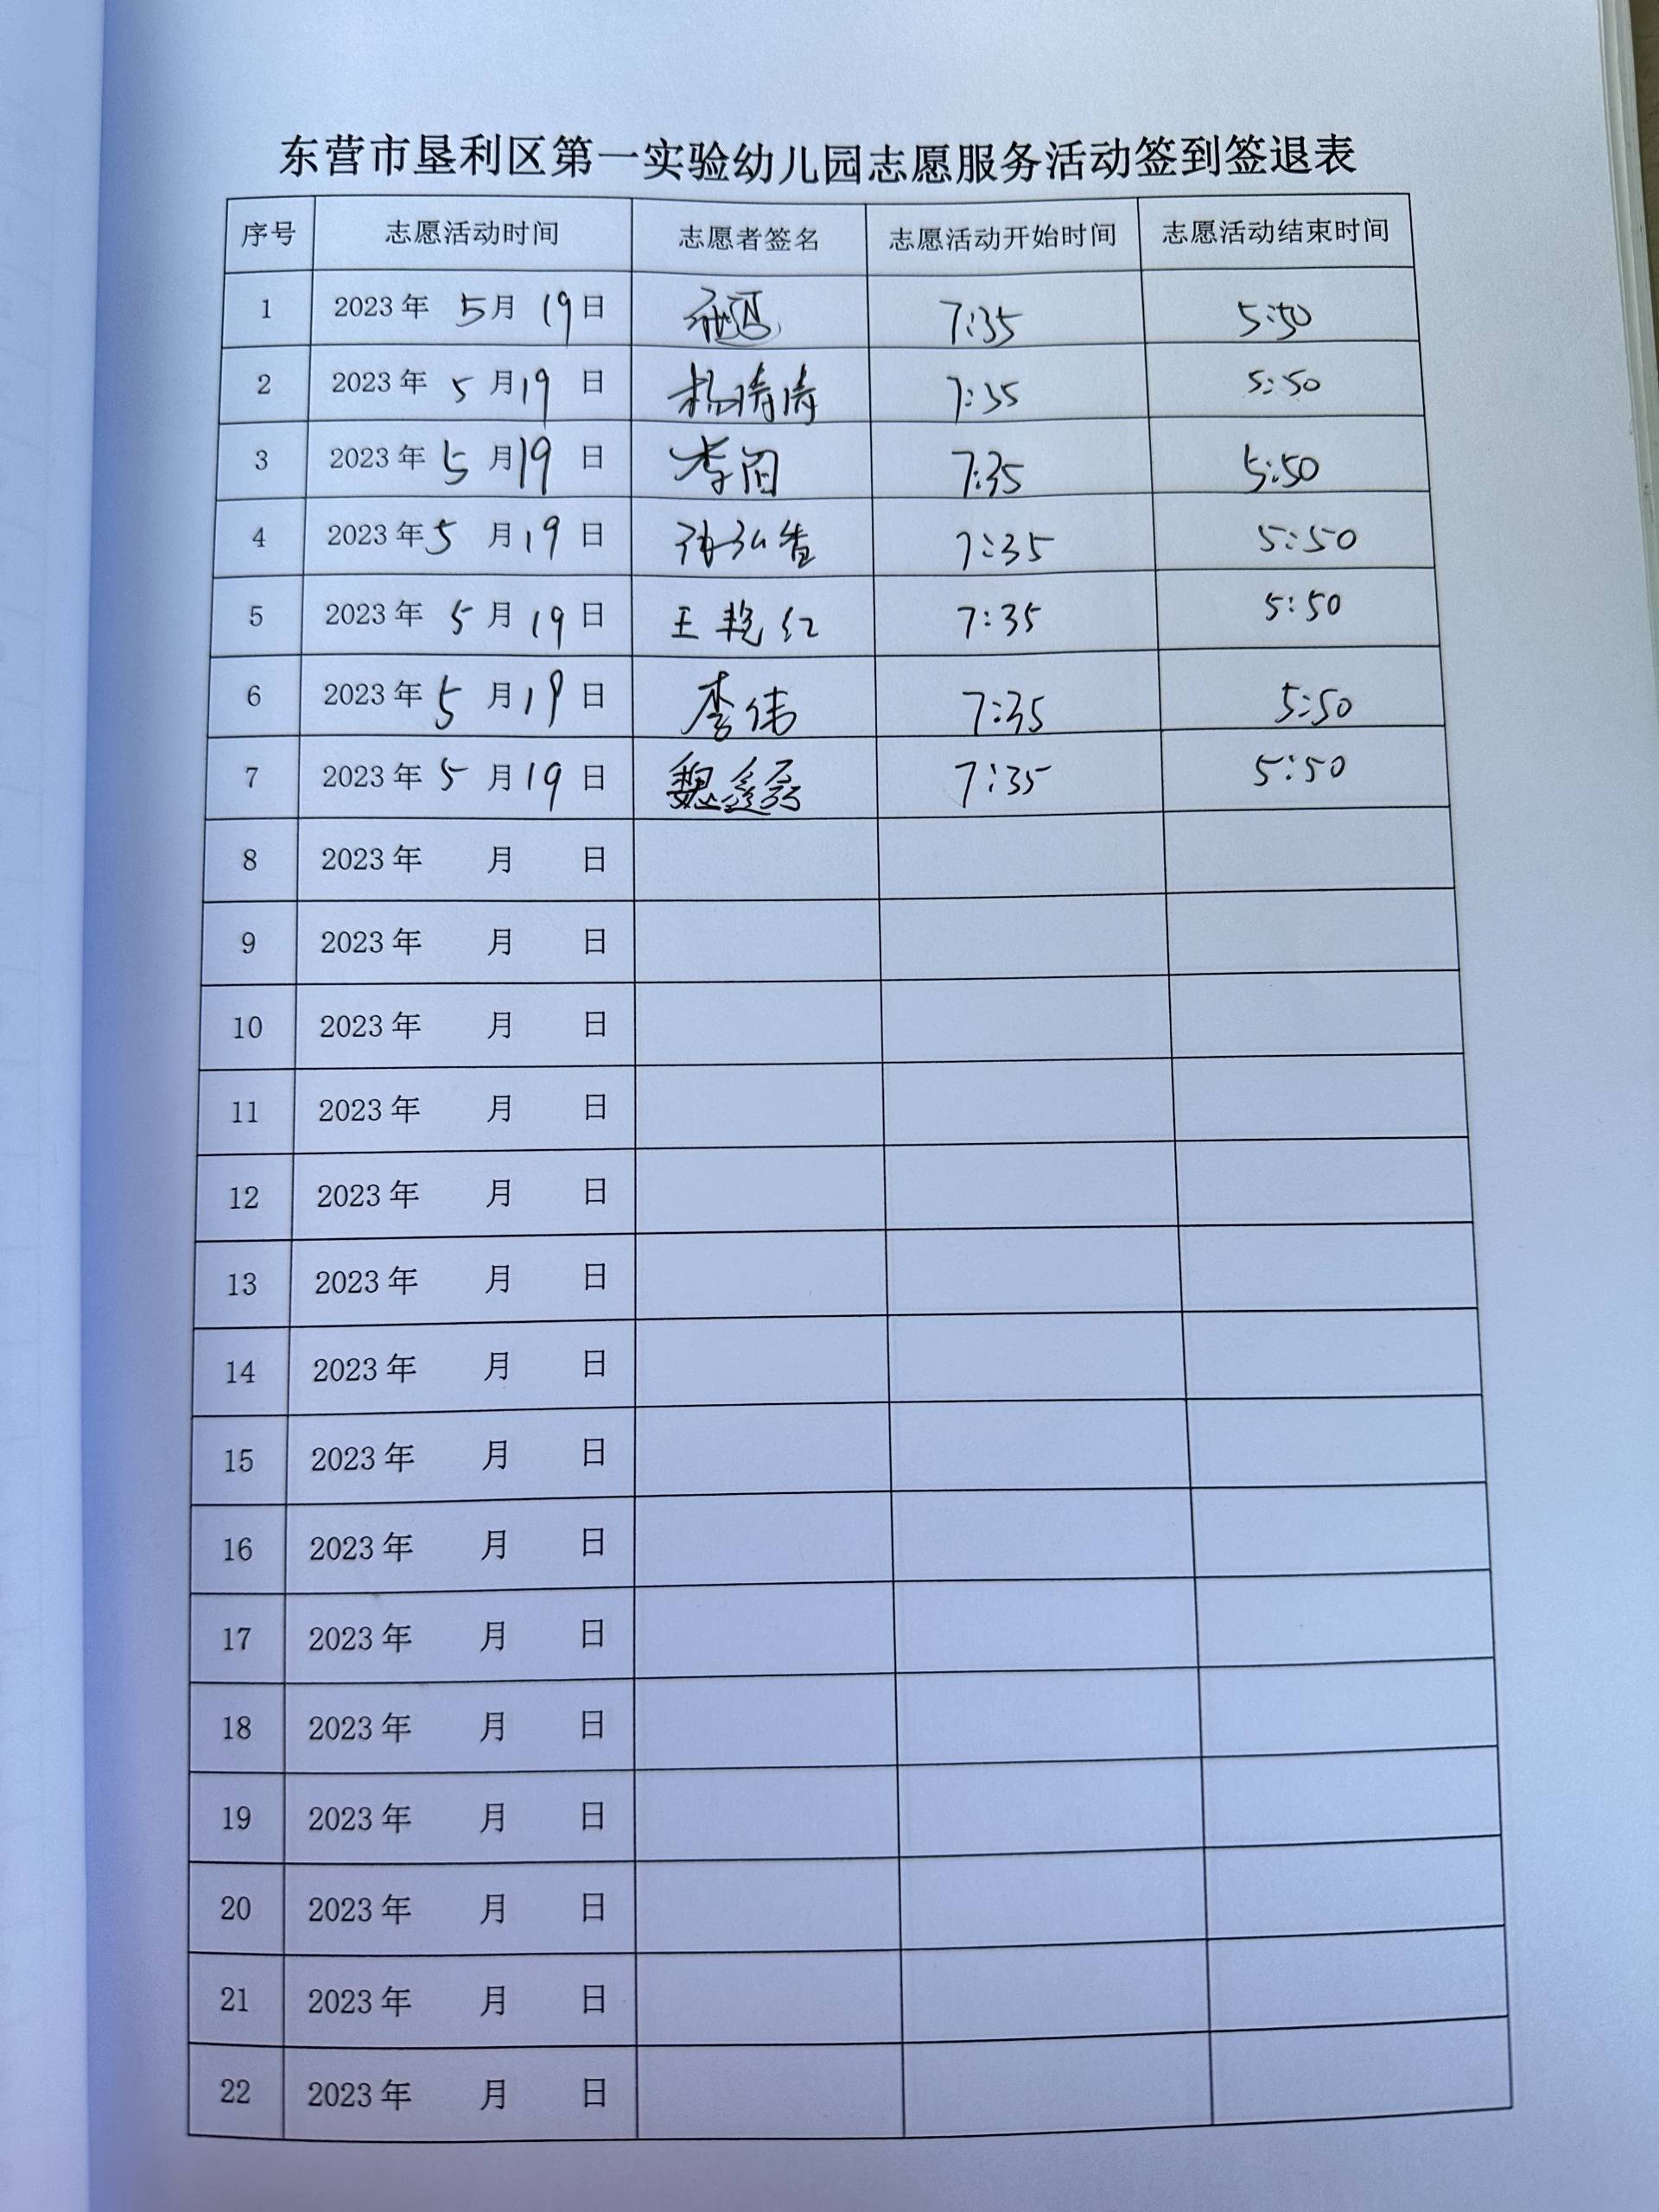 东营市垦利区第一实验幼儿园志愿服务活动签到签退表
序号 志愿活动时间 志愿者签名 志愿活动开始时间 志愿活动结束时间
1 2023年 5月 19日 7:35 5:50
2 2023年 5月19日 杨涛涛 7:35 5:50
3 2023年 5月19日 李 7:35 5:50
4 2023年5月19日 7:35 5:50
5 2023年 5月19日 王艳红 7:35 5:50
6 2023年5月19日 李伟 7:35 5:50
7 2023年5月19日 魏鑫磊 7:35 5:50
8 2023年 月 日
9 2023年 月 日
10 2023年 月 日
11 2023年 月 日
12 2023年 月 日
13 2023年 月 日
14 2023年 月 日
15 2023年 月 日
16 2023年 月 日
17 2023年 月 日
18 2023年 月 日
19 2023年 月 日
20 2023年 月 日
21 2023年 月 日
22 2023年 月 日